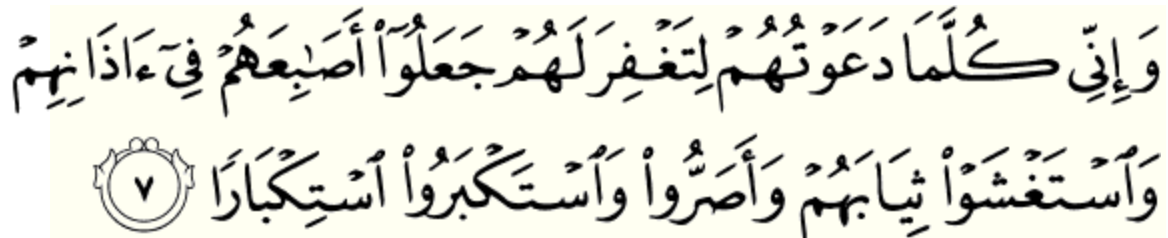 وَإِنِّي كُلَّمَا دَعَوْتُهُمْ لِتَغْفِرَ لَهُمْ جَعَلُوٓا۟ أَصَٰبِعَهُمْ فِىٓ ءَاذَانِهِمْ
وَٱسْتَغْشَوْا۟ ثِيَابَهُمْ وَأَصَرُّوا۟ وَٱسْتَكْبَرُوا۟ ٱسْتِكْبَارًا ٧